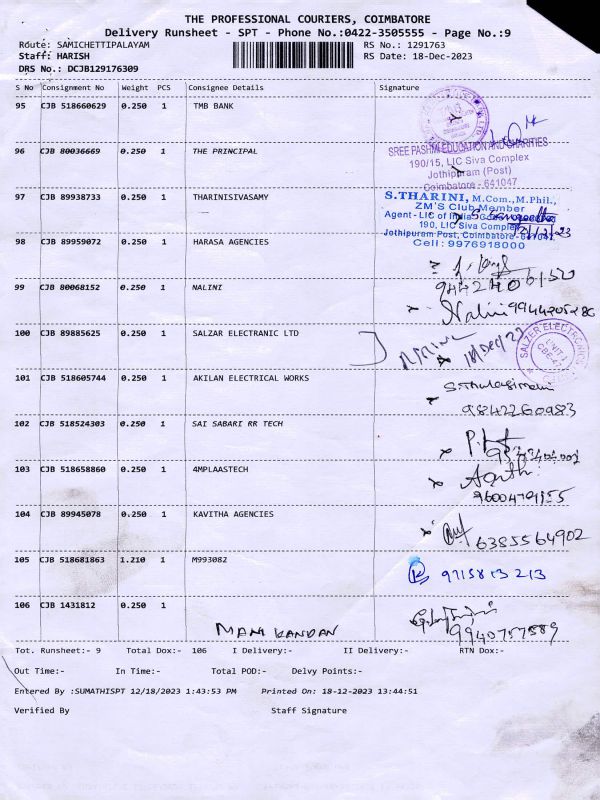 THE PROFESSIONAL COURIERS, COIMBATORE
Delivery Runsheet - SPT - Phone No.:0422-3505555 - Page No.:9
Route: SAMICHETTIPALAYAM RS No.: 1291763
Staff: HARISH RS Date: 18-Dec-2023
DRS No.: DCJB129176309
S No Consignment No Weight PCS Consignee Details Signature
95 CJB 518660629 0.250 1 TMB BANK
96 CJB 80036669 0.250 1 THE PRINCIPAL
SREE PASHMI EDUCATION AND CHARITIES
190/15, LIC Siva Complex
Jothipuram (Post)
Coimbatore - 641047
97 CJB 89938733 0.250 1 THARINISIVASAMY
S.THARINI, M.Com., M.Phil.,
ZM'S Club Member
Agent - LIC of India
190, LIC Siva Complex
Jothipuram Post, Coimbatore - 641047
Cell : 9976918000
98 CJB 89959072 0.250 1 HARASA AGENCIES
99 CJB 80068152 0.250 1 NALINI
Nalini
100 CJB 89885625 0.250 1 SALZAR ELECTRANIC LTD
SALZER ELECTRONICS
101 CJB 518605744 0.250 1 AKILAN ELECTRICAL WORKS
9842260983
102 CJB 518524303 0.250 1 SAI SABARI RR TECH
103 CJB 518658860 0.250 1 4MPLAASTECH
104 CJB 89945078 0.250 1 KAVITHA AGENCIES
6385564902
105 CJB 518681863 1.210 1 M993082
9715813213
106 CJB 1431812 0.250 1
MANI KANDAN
9940757589
Tot. Runsheet:- 9 Total Dox:- 106 I Delivery:- II Delivery:- RTN Dox:-
Out Time:- In Time:- Total POD:- Delvy Points:-
Entered By :SUMATHISPT 12/18/2023 1:43:53 PM Printed On: 18-12-2023 13:44:51
Verified By Staff Signature